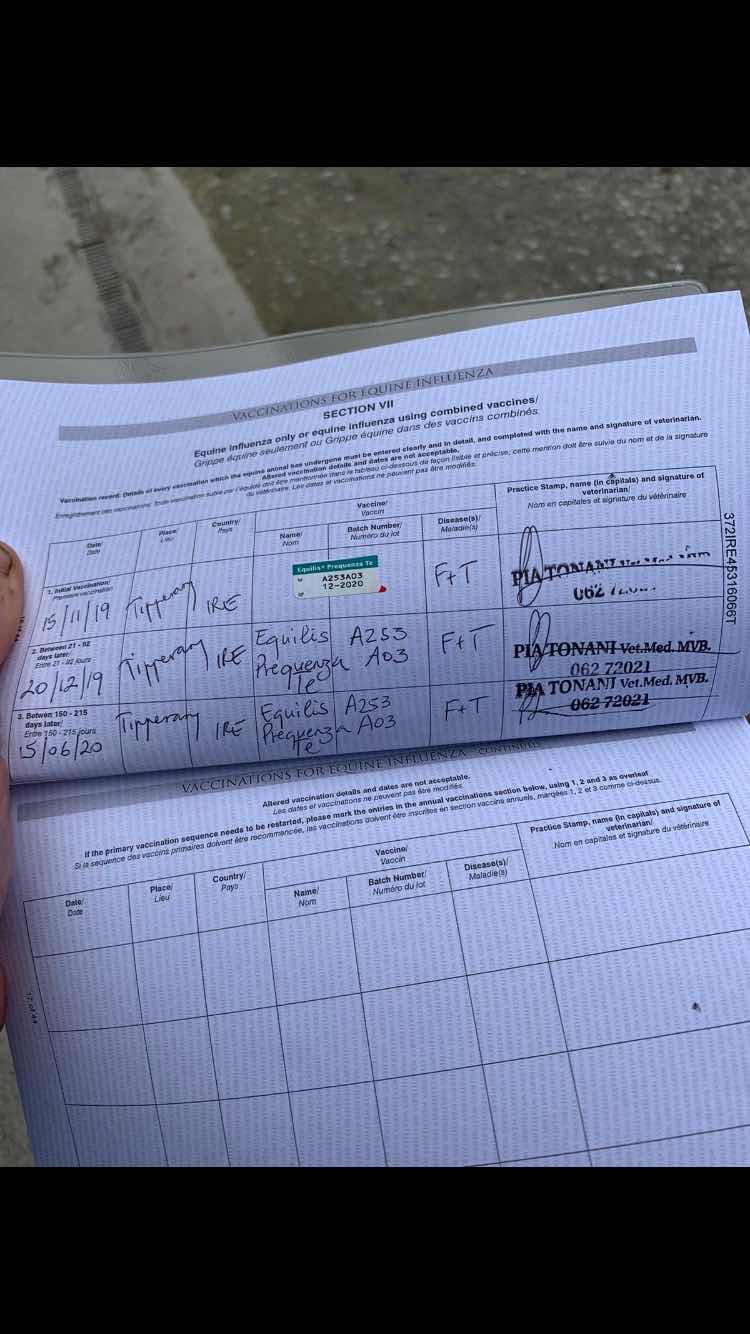 VACCINATIONS FOR EQUINE INFLUENZA
SECTION VII
Equine influenza only or equine influenza using combined vaccines/
Grippe équine seulement ou Grippe équine dans des vaccins combinés.
Vaccination record: Details of every vaccination which the equine animal has undergone must be entered clearly and in detail, and completed with the name and signature of veterinarian.
Altered vaccination details and dates are not acceptable.
Enregistrement des vaccinations: Toute vaccination subie par l'équidé doit être mentionnée dans le tableau ci-dessous de façon lisible et précise, cette mention doit être suivie du nom et de la signature
du vétérinaire. Les dates et vaccinations ne peuvent pas être modifiés.
Date/
Date
Place/
Lieu
Country/
Pays
Vaccine/
Vaccin
Name/
Nom
Batch Number/
Numéro du lot
Disease(s)/
Maladie(s)
Practice Stamp, name (in capitals) and signature of
veterinarian/
Nom en capitales et signature du vétérinaire
1. Initial Vaccination/
Première vaccination
15/11/19 Tipperary IRE
Equilis® Prequenza Te
A253A03
12-2020
F+T
PIA TONANI
062
2. Between 21 - 92
days later/
Entre 21 - 92 jours
20/12/19 Tipperary IRE
Equilis
Prequenza
Te
A253
A03
F+T
PIA TONANI Vet.Med. MVB.
062 72021
3. Betwen 150 - 215
days later/
Entre 150 - 215 jours
15/06/20 Tipperary IRE
Equilis
Prequenza
Te
A253
A03
F+T
PIA TONANI Vet.Med. MVB.
062 72021
372IRE45316066T
VACCINATIONS FOR EQUINE INFLUENZA - CONTINUED
Altered vaccination details and dates are not acceptable.
Les dates et vaccinations ne peuvent pas être modifiés
If the primary vaccination sequence needs to be restarted, please mark the entries in the annual vaccinations section below, using 1, 2 and 3 as overleaf
Si la séquence des vaccins primaires doivent être recommencée, les vaccinations doivent être inscrites en section vaccins annuels, marqées 1, 2 et 3 comme ci-dessus.
Date/
Date
Place/
Lieu
Country/
Pays
Vaccine/
Vaccin
Name/
Nom
Batch Number/
Numéro du lot
Disease(s)/
Maladie(s)
Practice Stamp, name (in capitals) and signature of
veterinarian/
Nom en capitales et signature du vétérinaire
17 of 44